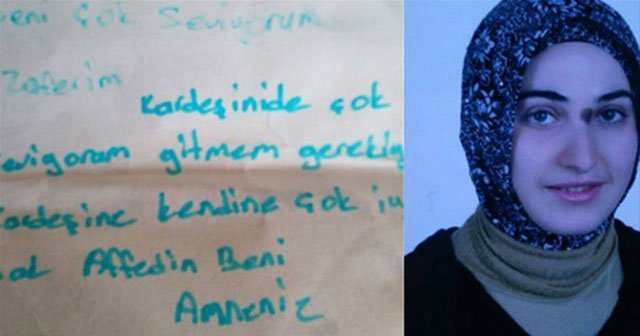 Seni Çok Seviyorum
Zaferim
Kardeşinide çok
seviyoram gitmem gerekiy
Kardeşine kendine çok iyi
bak Affedin Beni
Anneniz